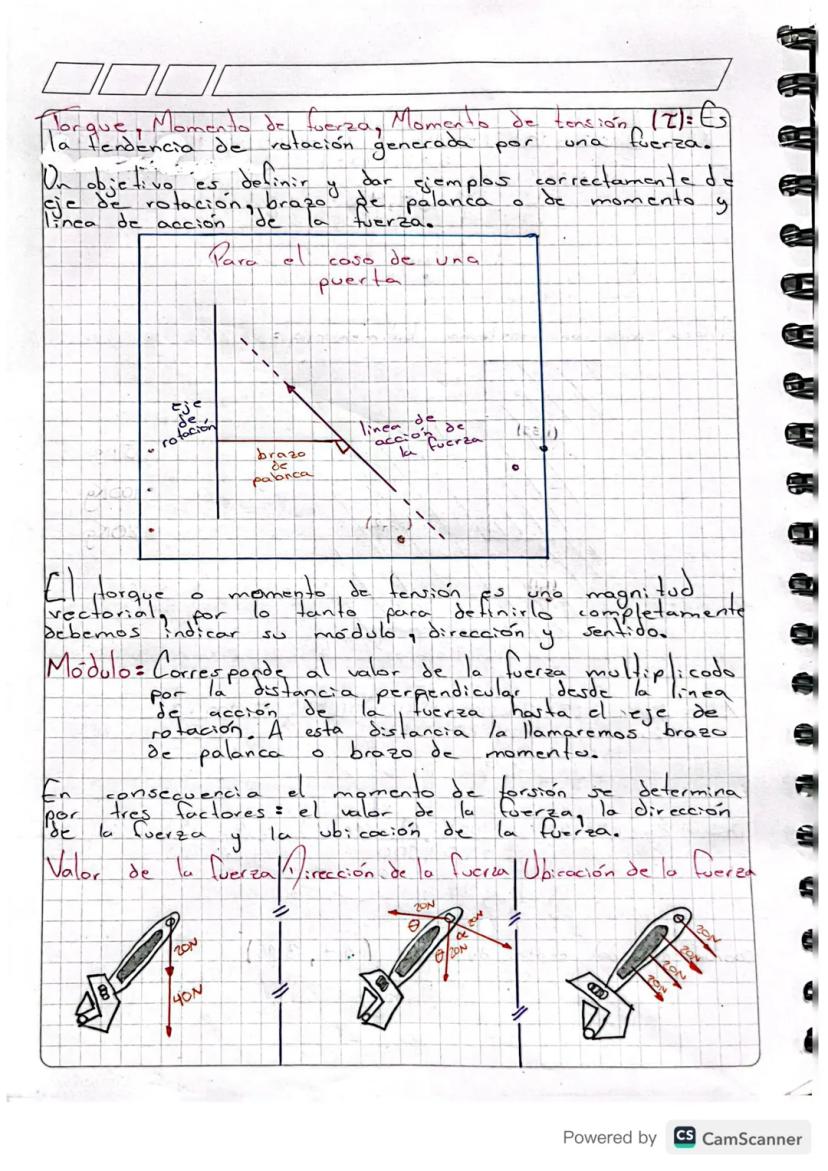 Torque, Momento de fuerza, Momento de tensión (τ): Es
la tendencia de rotación generada por una fuerza.
Un objetivo es definir y dar ejemplos correctamente de
eje de rotación, brazo de palanca o de momento y
linea de acción de la fuerza.
Para el caso de una
puerta
Eje
de
rotación
brazo
de
palanca
linea de
acción de
la fuerza
El torque o momento de tensión es una magnitud
vectorial, por lo tanto para definirlo completamente
debemos indicar su módulo, dirección y sentido.
Módulo: Corresponde al valor de la fuerza multiplicado
por la distancia perpendicular desde la linea
de acción de la fuerza hasta el eje de
rotación. A esta distancia la llamaremos brazo
de palanca o brazo de momento.
En consecuencia el momento de torsión se determina
por tres factores: el valor de la fuerza, la dirección
de la fuerza y la ubicación de la fuerza.
Valor de la fuerza Dirección de la fuerza Ubicación de la fuerza
20N
40N
20N
θ
20N
α
θ
20N
20N
20N
20N
20N
Powered by CS CamScanner